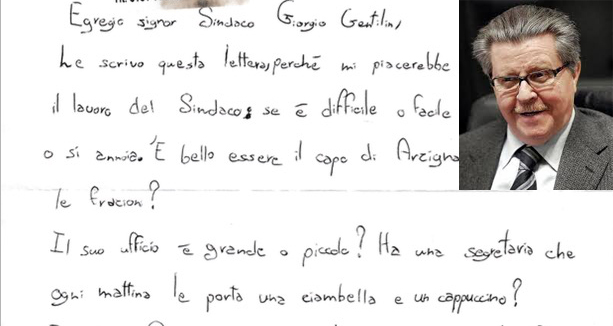 Egregio signor Sindaco Giorgio Gentilin,
Le scrivo questa lettera, perché mi piacerebbe
il lavoro del Sindaco; se è difficile o facile
o si annoia. È bello essere il capo di Arzigna
le frazioni?
Il suo ufficio è grande o piccolo? Ha una segretaria che
ogni mattina le porta una ciambella e un cappuccino?